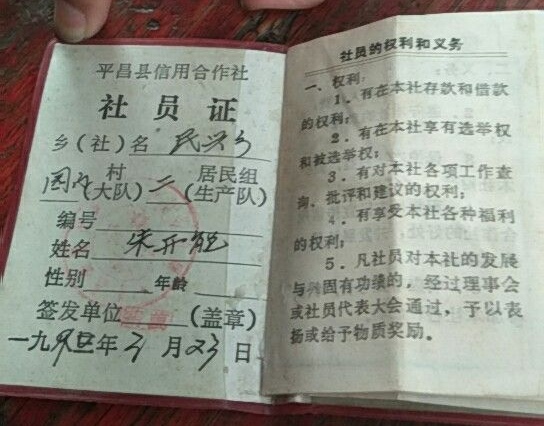 平昌县信用合作社
社员证
乡(社)名 民兴乡
村 居民组
(大队) 二 (生产队)
编号
姓名 朱开
性别 年龄
签发单位 (盖章)
一九 年 月 23 日
社员的权利和义务
一、权利:
1.有在本社存款和借款
的权利;
2.有在本社享有选举权
和被选举权;
3.有对本社各项工作查
询、批评和建议的权利;
4.有享受本社各种福利
的权利;
5.凡社员对本社的发展
与巩固有功绩的,经过理事会
或社员代表大会通过,予以表
扬或给予物质奖励。